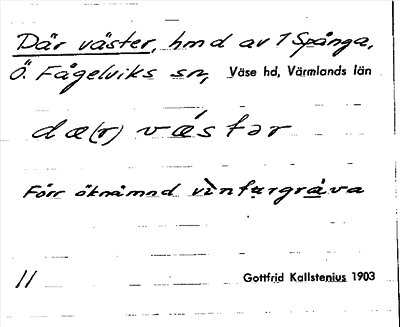 Där väster, hmd av 1 Spånga,
Ö. Fågelviks sn, Väse hd, Värmlands län
dæ(r) vǽstər
Förr öknämnd vìnfargråva
11 Gottfrid Kallstenius 1903